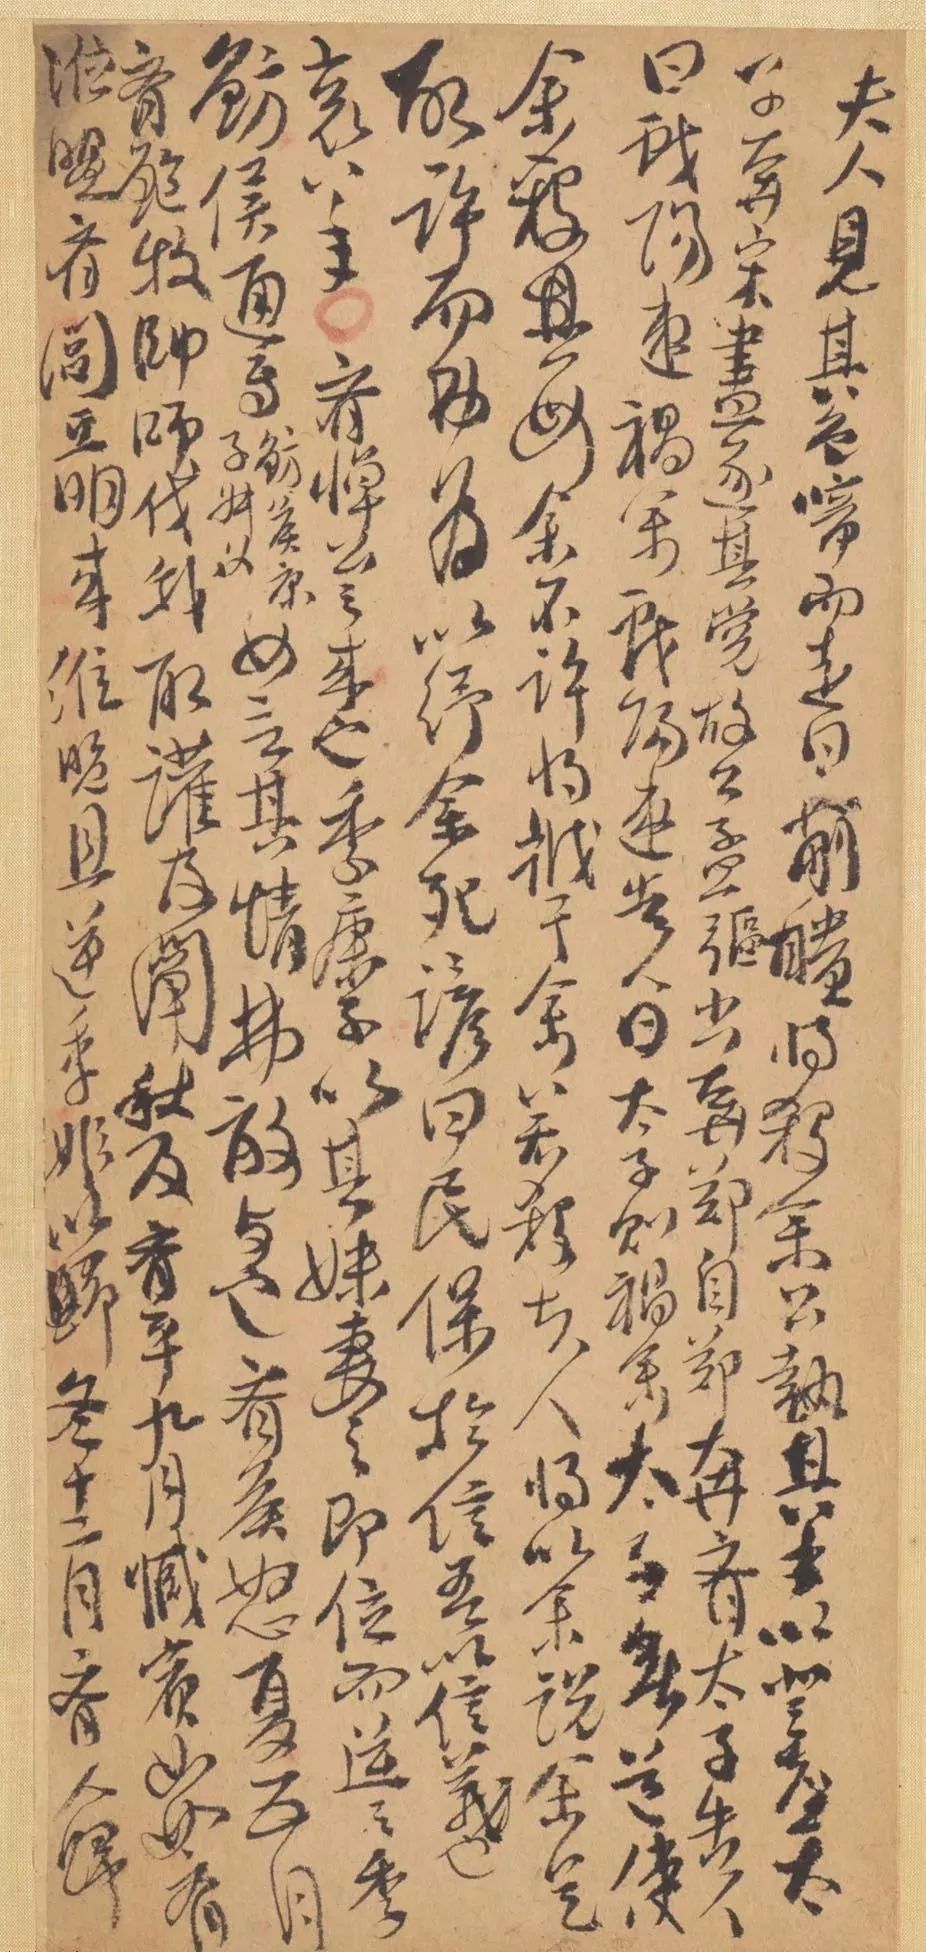 夫人見其色啼而走曰蒯聵將殺余公執其手以登臺太
子奔宋盡逐其党故公孟彄出奔郑自郑奔齊太子告人
曰戲陽速禍余戲陽速告人曰太子則禍余太子無道使
余殺其母余不許將戕于余若殺夫人將以余說余是
故許而勿為以紓余死諺曰民保於信吾以信義也
哀八年 齊悼公之來也季康子以其妹妻之即位而逆之季
魴侯通焉魴侯康子叔父女言其情弗敢與也齊侯怒夏五月
齊鮑牧帥師伐我取讙及闡秋及齊平九月臧賓如如齊
涖盟齊閭丘明來涖盟且逆季姬以歸冬十二月齊人歸